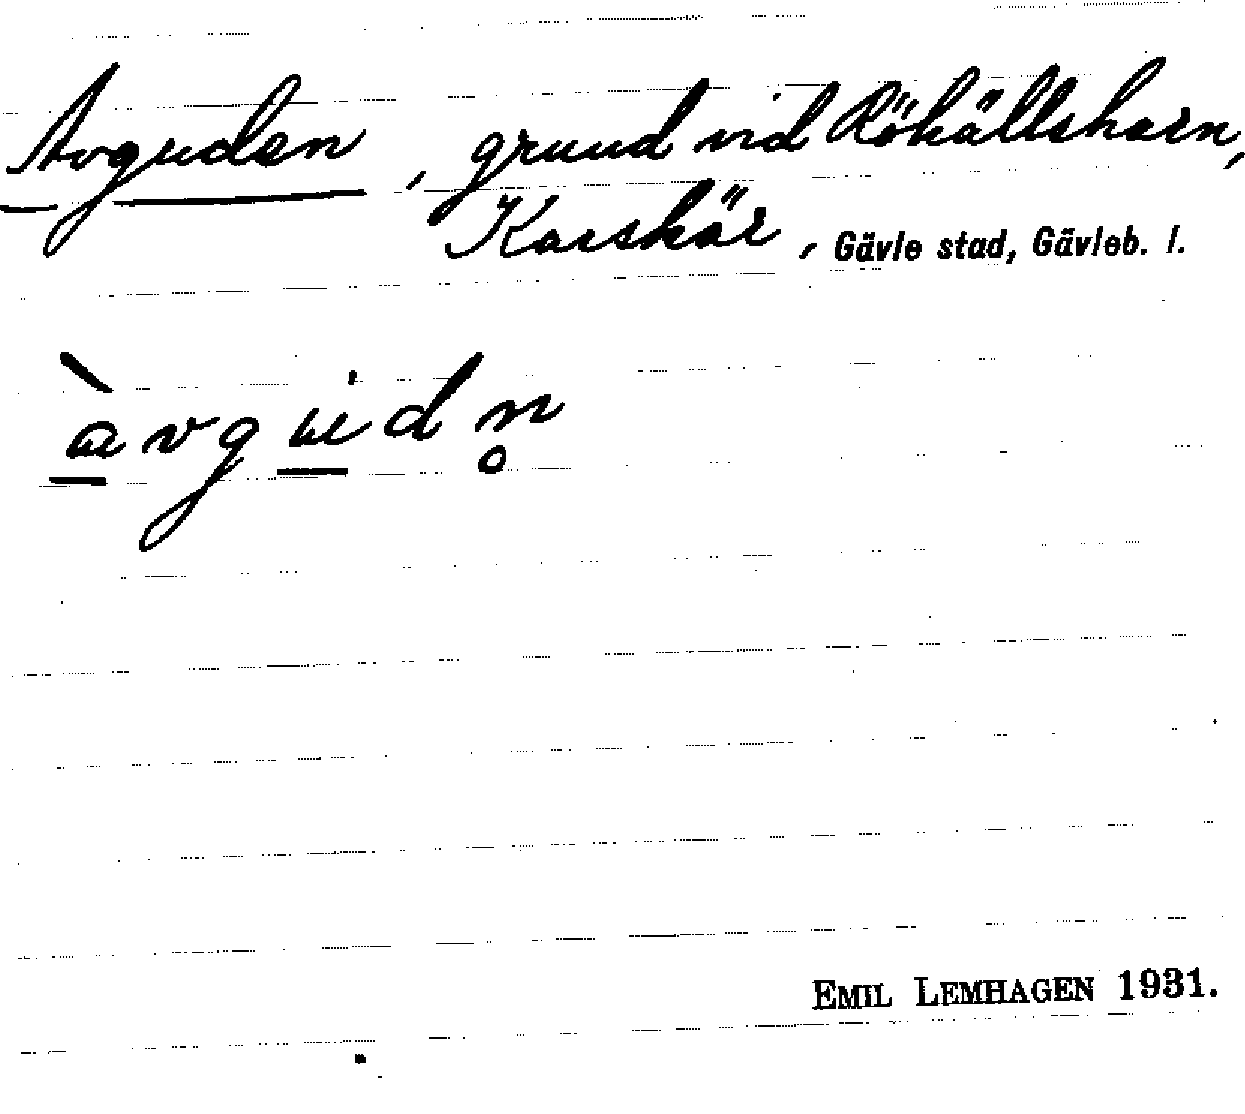 Avguden, grund vid Rökällsharn,
Karskär, Gävle stad, Gävleb. l.
àvgudn̥
EMIL LEMHAGEN 1931.